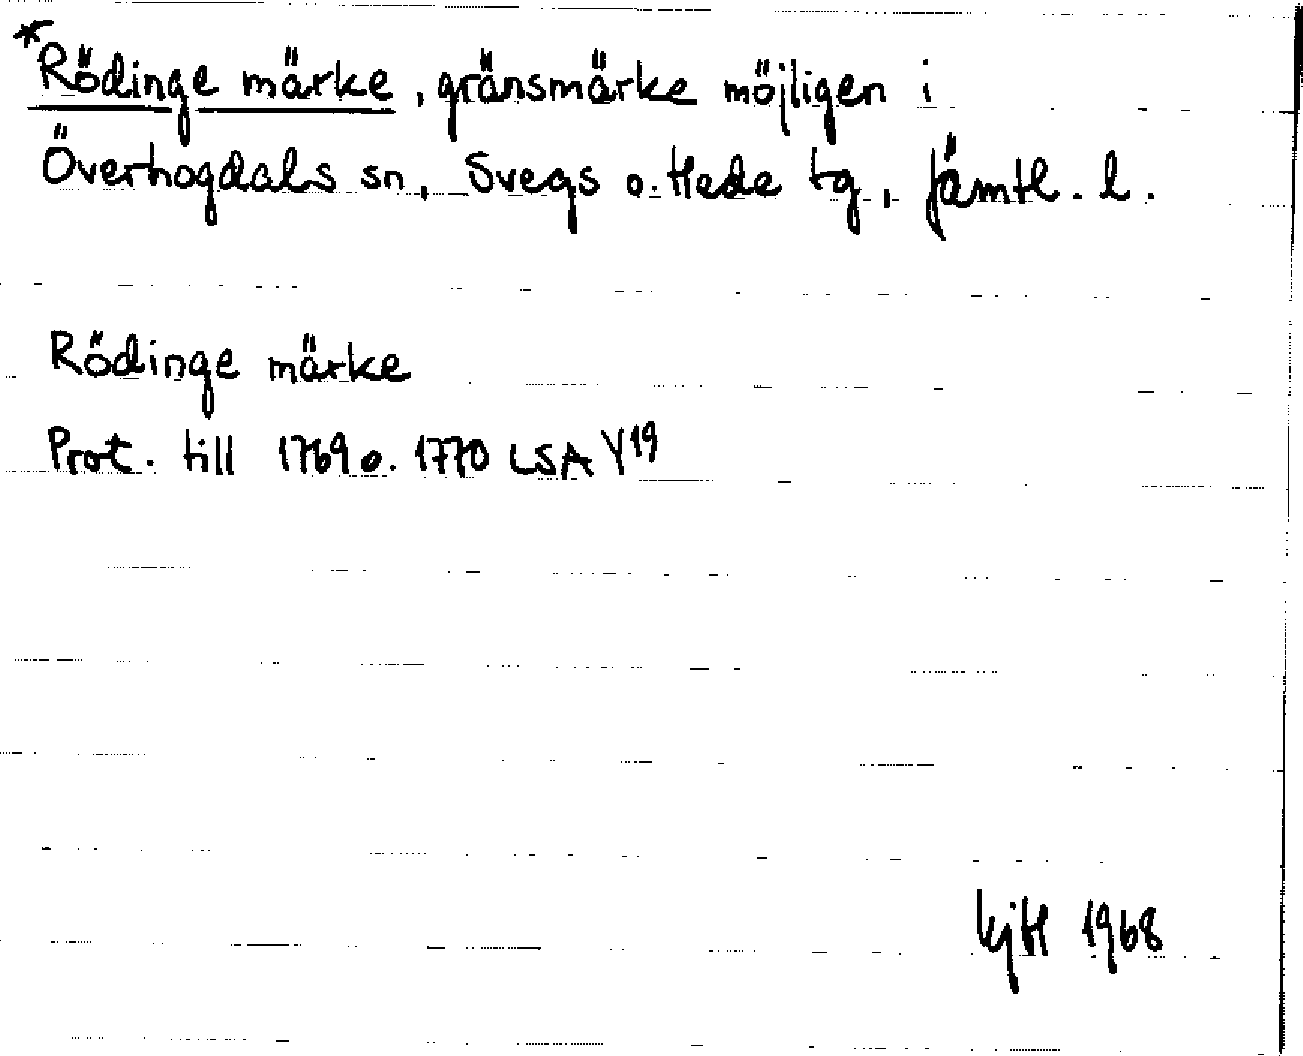 *Rödinge märke, gränsmärke möjligen i
Överhogdals sn, Svegs o. Hede tg, Jämtl. l.
Rödinge märke
Prot. till 1769 o. 1770 LSA Y19
1968